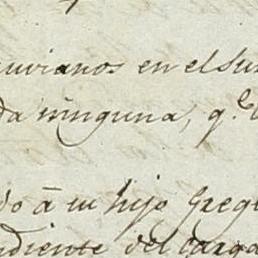 uvianos en el Su
da ninguna, q.e
do á su hijo Greg
ndiente del carga